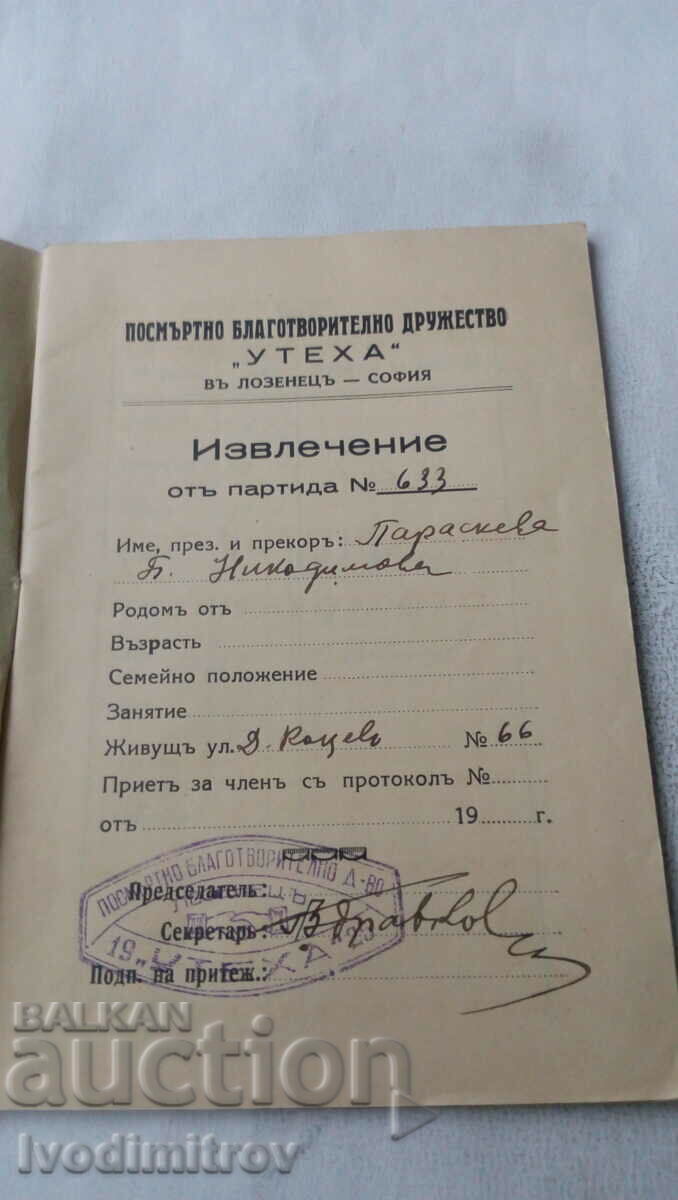 ПОСМЪРТНО БЛАГОТВОРИТЕЛНО ДРУЖЕСТВО
„УТЕХА“
ВЪ ЛОЗЕНЕЦЪ — СОФИЯ
Извлечение
отъ партида № 633
Име, през. и прекоръ: Параскева
Б. Никодимова
Родомъ отъ
Възрасть
Семейно положение
Занятие
Живущъ ул. Д. Коцевъ № 66
Приетъ за членъ съ протоколъ №
отъ 19 г.
ПОСМЪРТНО БЛАГОТВОРИТЕЛНО Д-ВО
19 „УТЕХА“
Председатель:
Секретарь:
Подп. на притеж.:
BALKAN
auction
Ivodimitrov